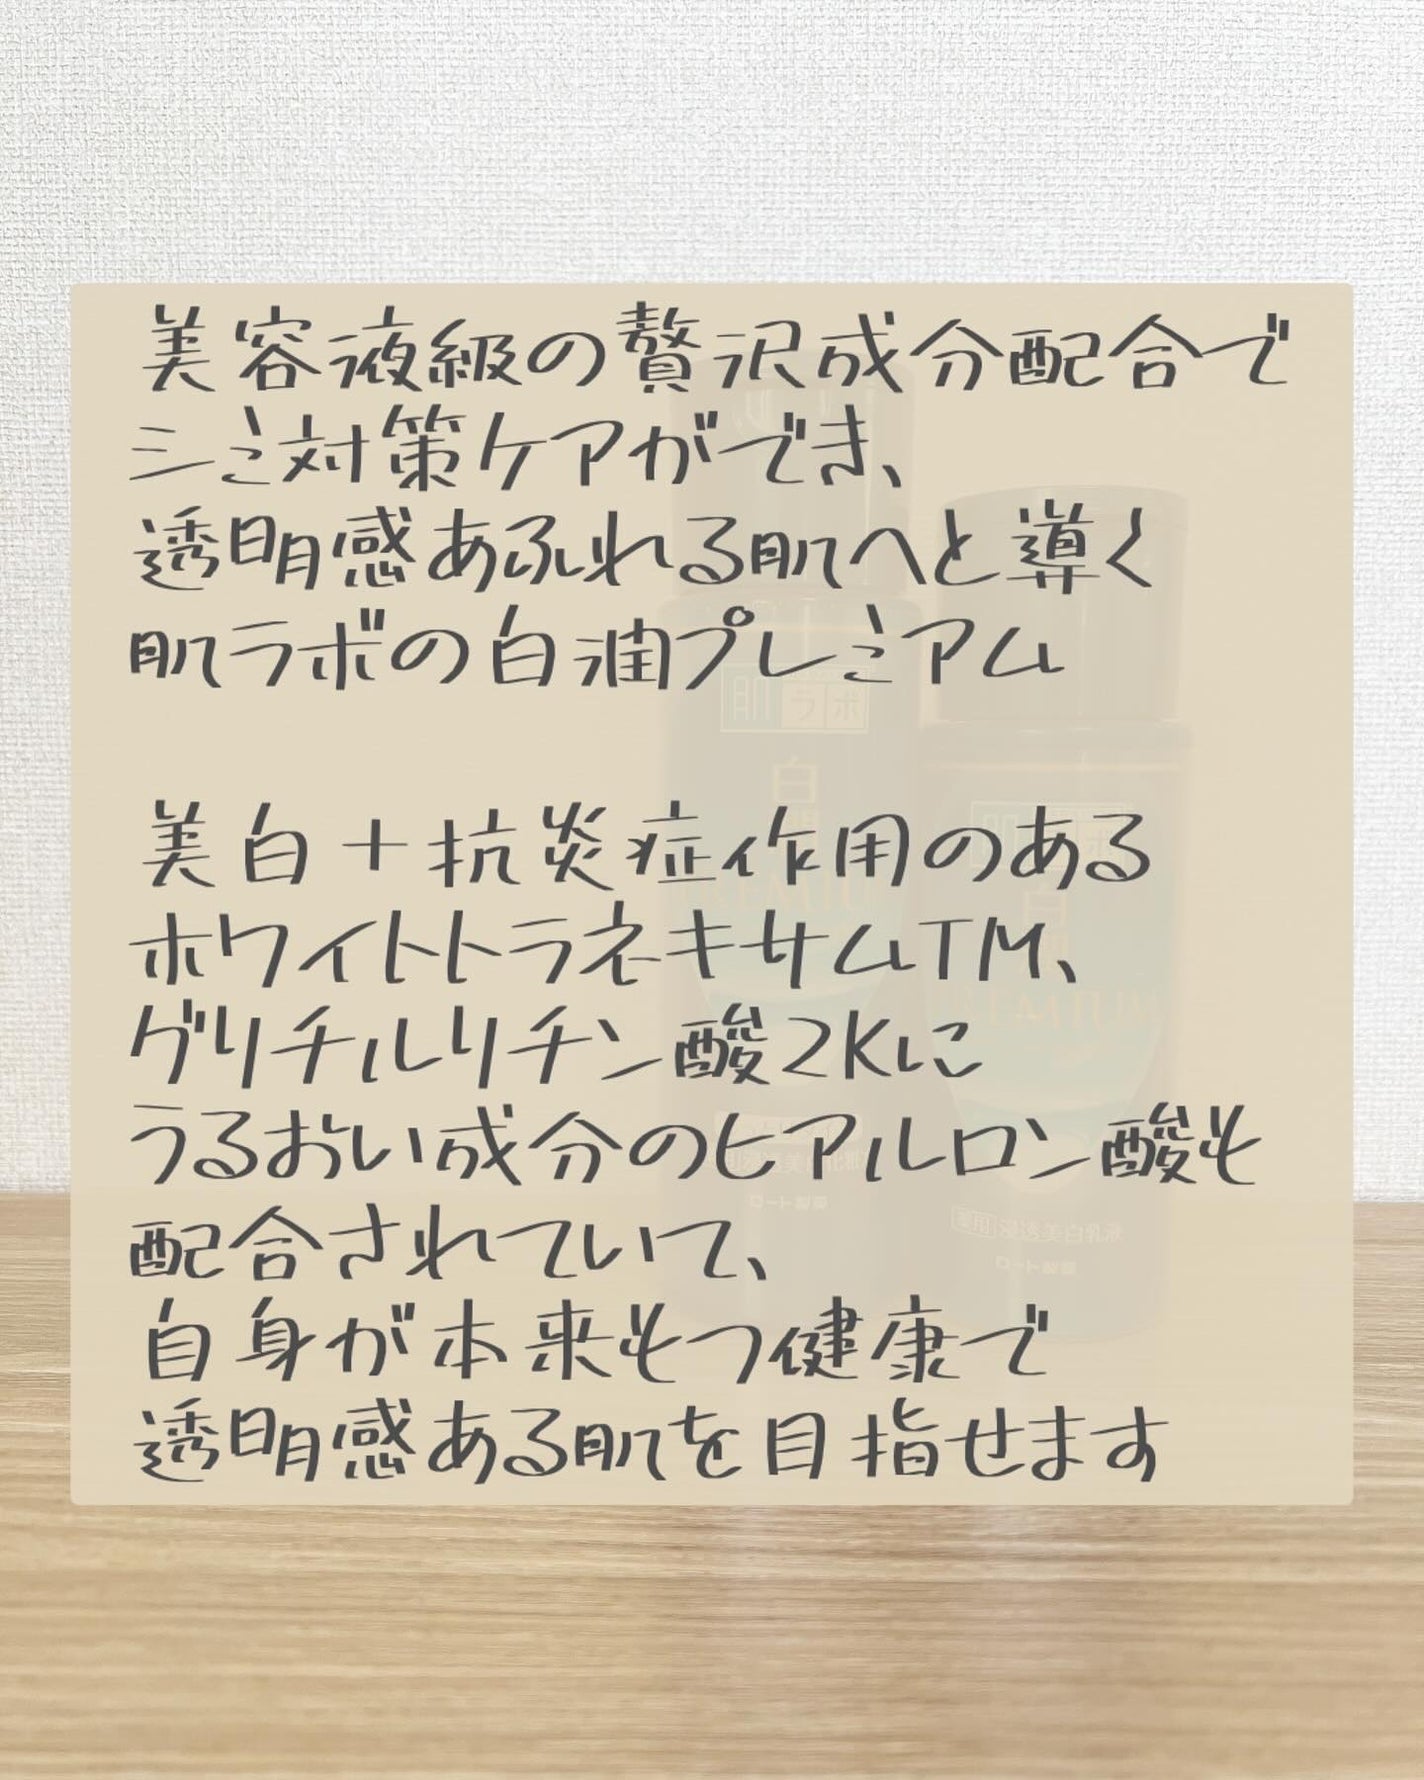 美容液級の贅沢成分配合で
シミ対策ケアができ、
透明感あふれる肌へと導く
肌ラボの白潤プレミアム
美白＋抗炎症作用のある
ホワイトトラネキサムTM、
グリチルリチン酸2Kに
うるおい成分のヒアルロン酸も
配合されていて、
自身が本来もつ健康で
透明感ある肌を目指せます
肌ラボ
白
浸透美白乳液
ロート製薬